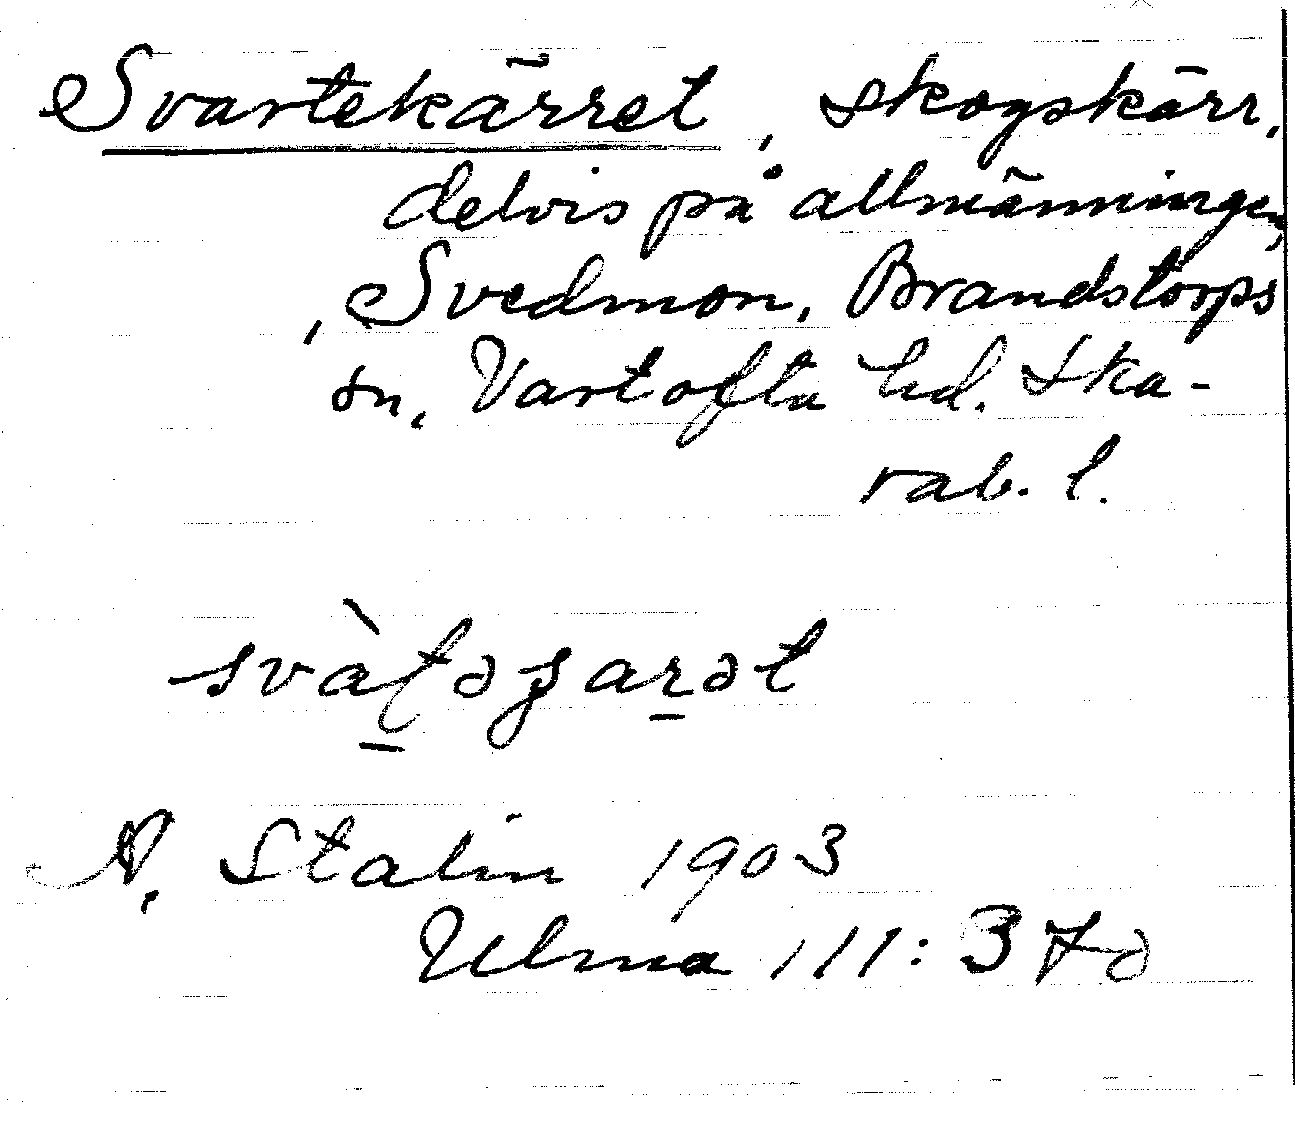 Svartekärret, skogskärr,
delvis på allmänningen,
Svedmon, Brandstorps
sn, Vartofta hd. Ska-
rab. l.
N. Stalin 1903
Ulma 111:37